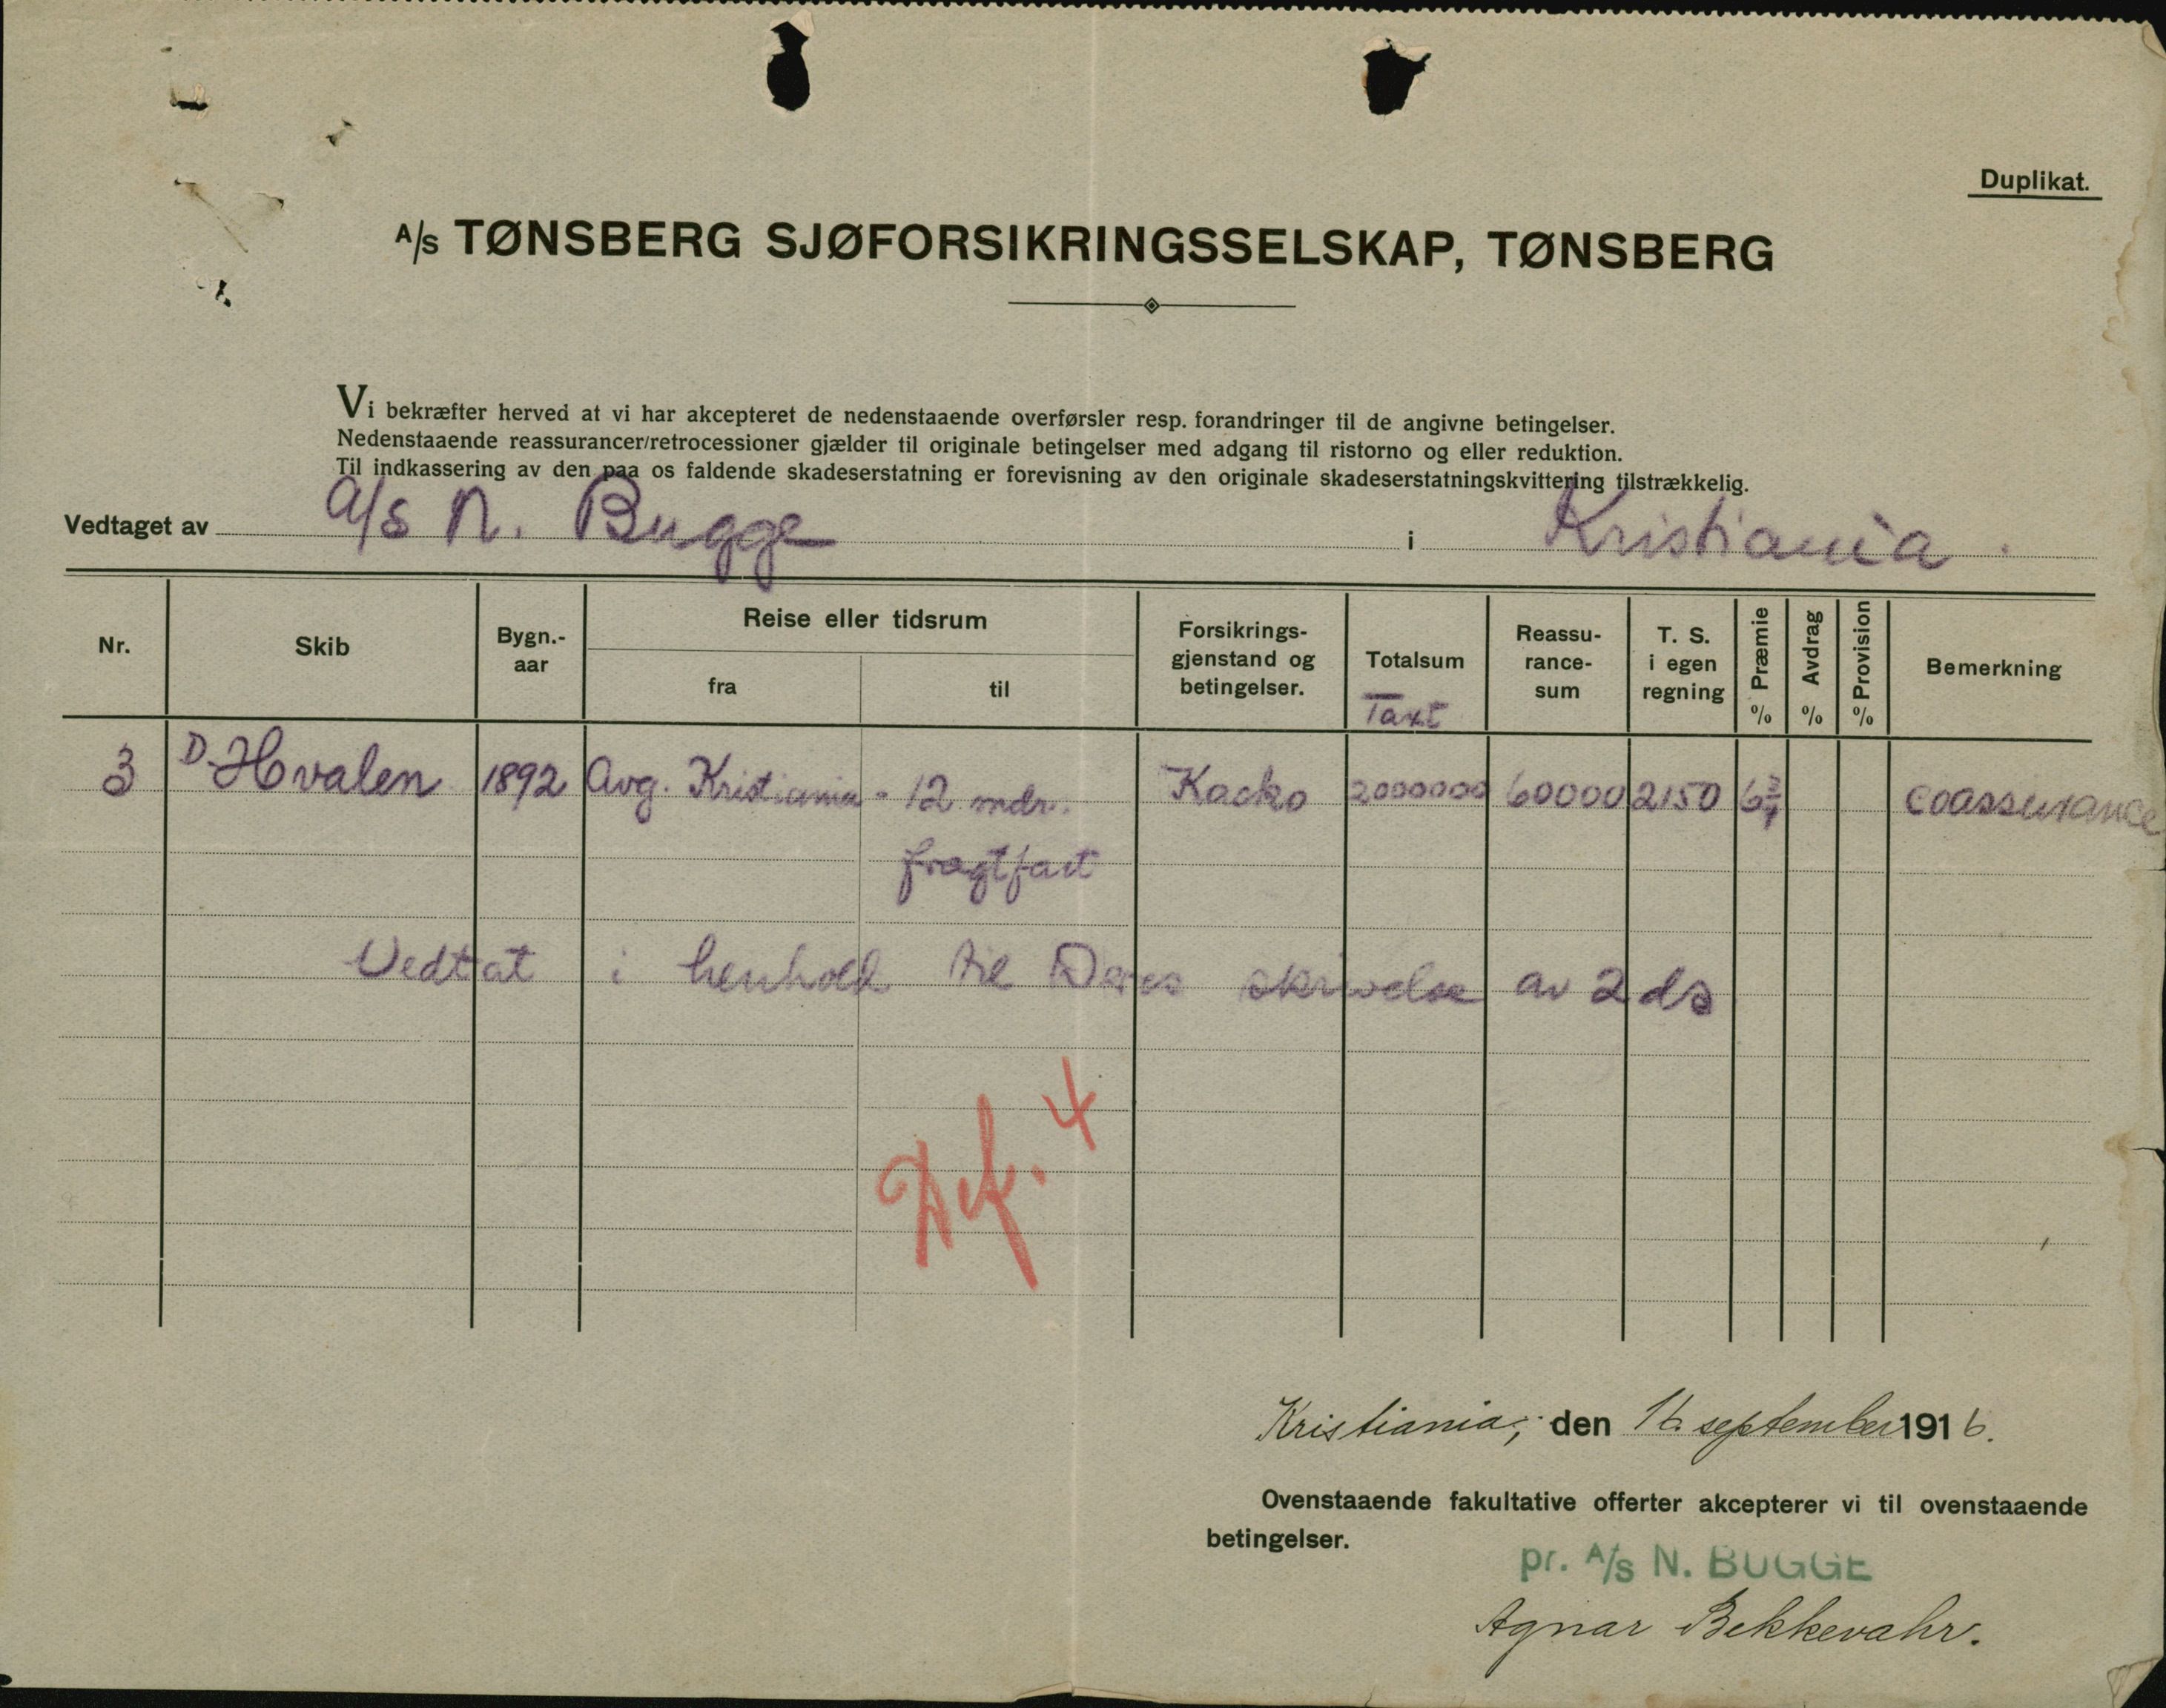 Duplikat.
A/S TØNSBERG SJØFORSIKRINGSSELSKAP, TØNSBERG
Vi bekræfter herved at vi har akcepteret de nedenstaaende overførsler resp. forandringer til de angivne betingelser.
Nedenstaaende reassurancer/retrocessioner gjælder til originale betingelser med adgang til ristorno og eller reduktion.
Til indkassering av den paa os faldende skadeserstatning er forevisning av den originale skadeserstatningskvittering tilstrækkelig.
Vedtaget av A/S N. Bugge i Kristiania.
Nr. Skib Bygn.-aar Reise eller tidsrum fra til Forsikrings-gjenstand og betingelser. Totalsum Taxt Reassu-rance-sum T. S. i egen regning Præmie % Avdrag % Provision % Bemerkning
3 D. Hvalen 1892 Avg. Kristiania - 12 mdr. Kasko 2000000 60000 2150 6 3/4 coassurance
fragtfart
Vedtat i henhold til Deres skrivelse av 2 ds
4
Kristiania, den 16. september 1916.
Ovenstaaende fakultative offerter akcepterer vi til ovenstaaende
betingelser.
pr. A/S N. BUGGE
Agnar Bekkevahr.